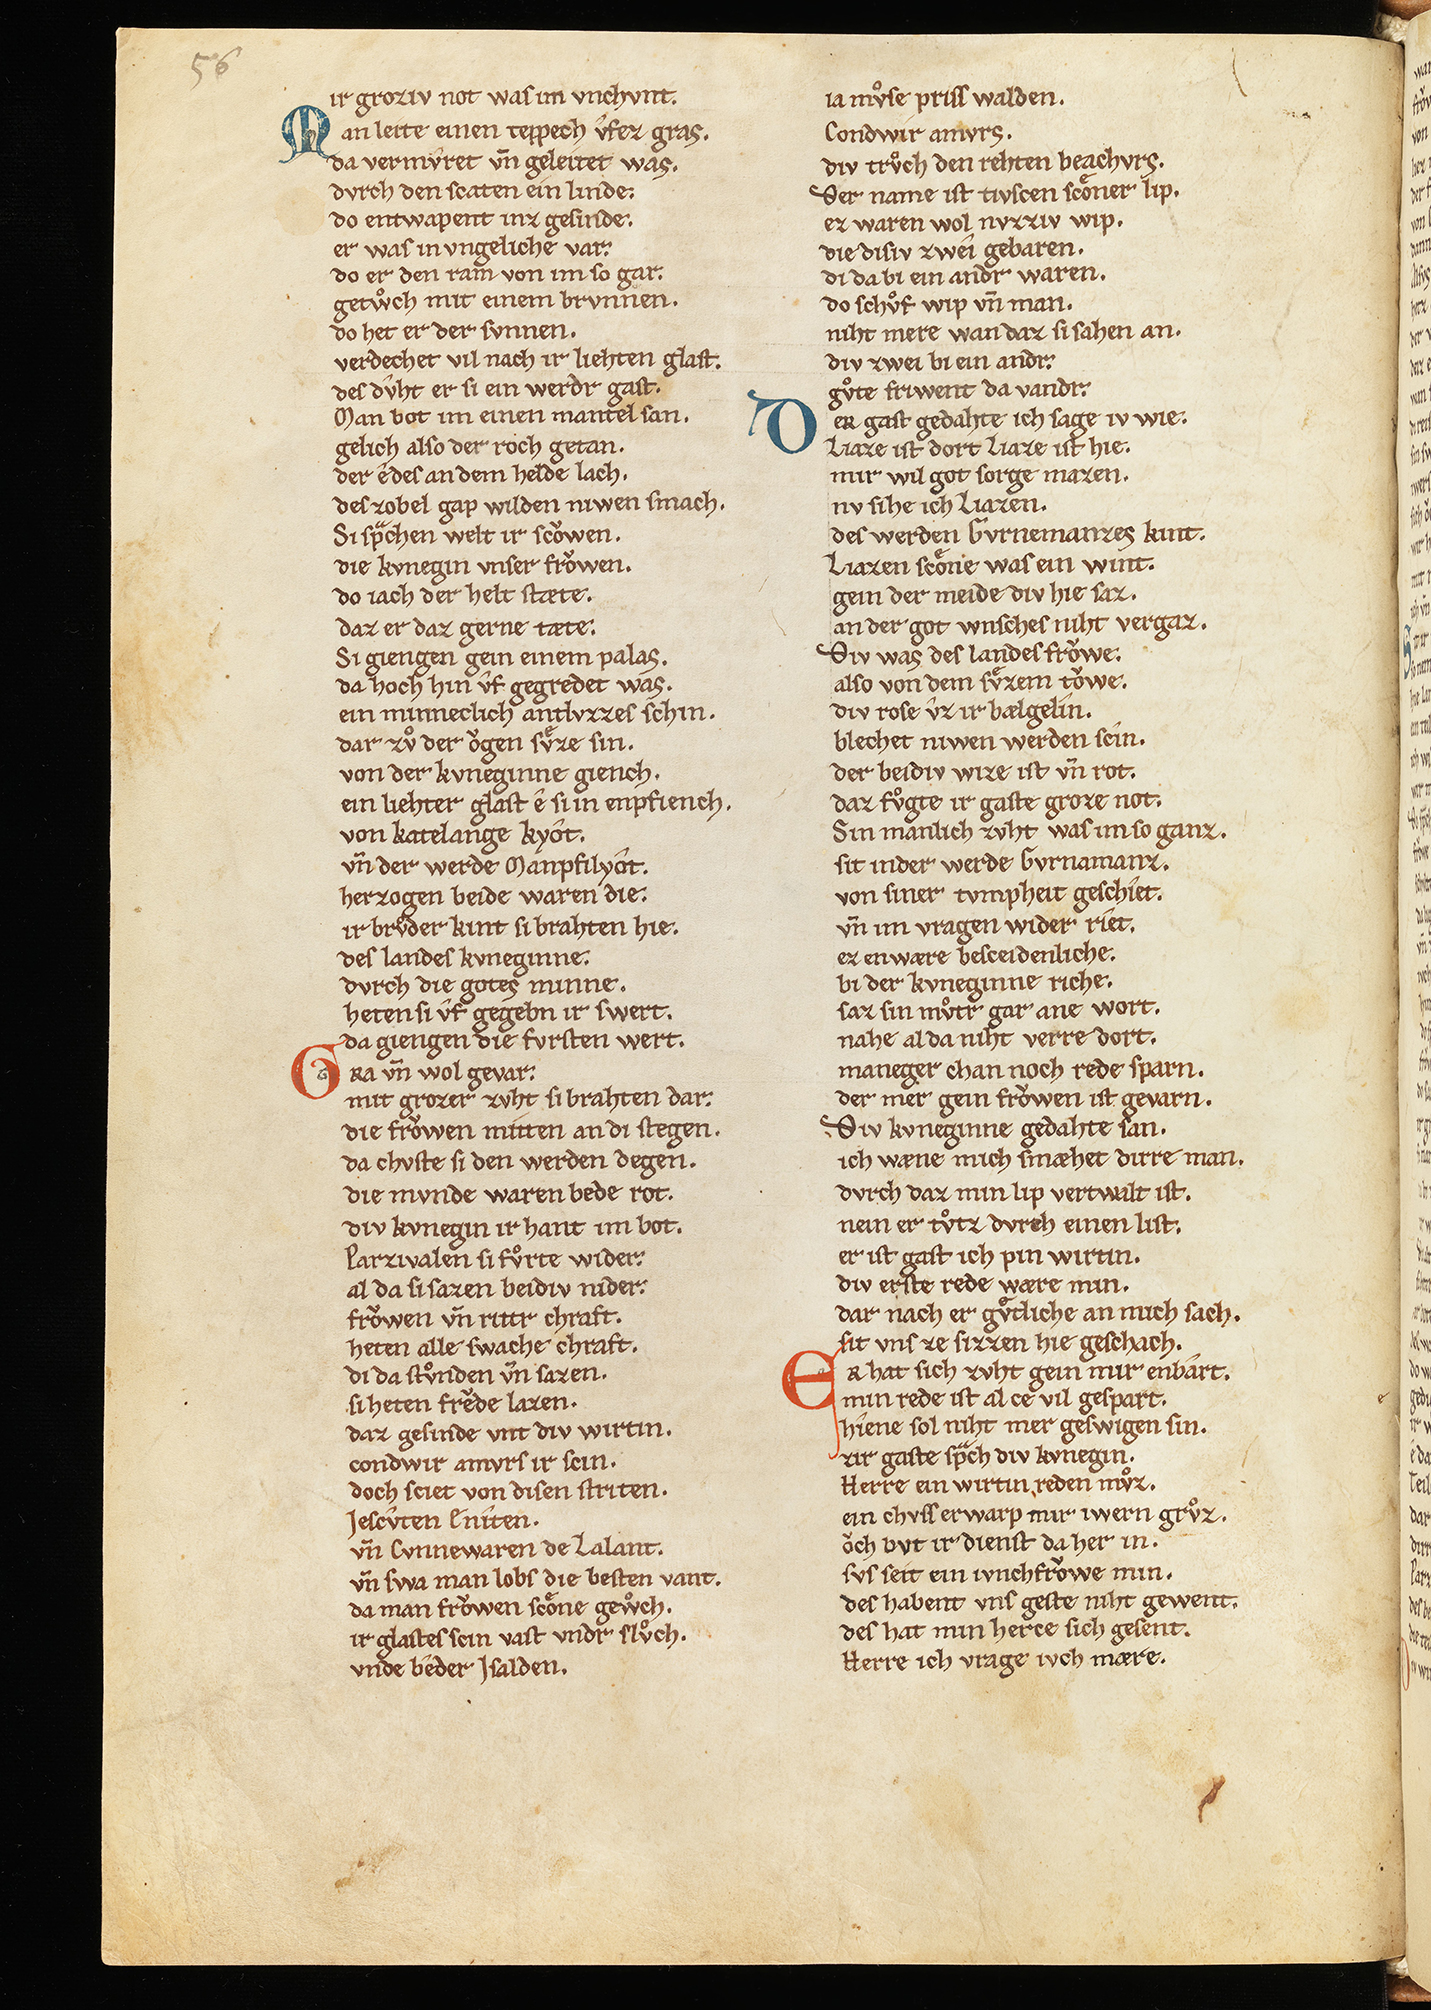 56
ir groziv not was im vnchvnt.
Man leite einen teppech v̂fez gras.
da vermv̂ret vn̄ geleitet was.
dvrch den scaten ein linde.
do entwapent inz gesinde.
er was in vngeliche var.
do er den ram von im so gar.
getwͦch mit einem brvnnen.
do het er der svnnen.
verdechet vil nach ir liehten glast.
des dv̂ht er si ein werdr gast.
Man bot im einen mantel san.
gelich also der roch getan.
der ê des an dem helde lach.
des zobel gap wilden niwen smach.
Si spͣchen welt ir scoͮwen.
die kvnegin vnser froͮwen.
do iach der helt stæte.
daz er daz gerne tæte.
Si giengen gein einem palas.
da hoch hin v̂f gegredet was.
ein minneclich antlvzzes schin.
dar zvͦ der oͮgen svͤze sin.
von der kvneginne giench.
ein liehter glast ê si in enpfiench.
von katelange kyôt.
vn̄ der werde Manpfilyôt.
herzogen beide waren die.
ir brvͦder kint si brahten hie.
des landes kvneginne.
dvrch die gotes minne.
heten si v̂f gegebn ir swert.
da giengen die fvrsten wert.
GRa vn̄ wol gevar.
mit grozer zvht si brahten dar.
die froͮwen mitten an di stegen.
da chvste si den werden degen.
die mvnde waren bede rot.
div kvnegin ir hant im bot.
Parzivalen si fvͦrte wider.
al da si sazen beidiv nider.
froͮwen vn̄ rittr chraft.
heten alle swache chraft.
di da stvͦnden vn̄ sazen.
si heten freͮde lazen.
daz gesinde vnt div wirtin.
condwir amvrs ir scin.
doch sciet von disen striten.
Jescv̂ten Enîten.
vn̄ Cvnnewaren de Lalant.
vn̄ swa man lobs die besten vant.
da man froͮwen scoͤne gewͦch.
ir glastes scin vast vndr slvͦch.
vnde bêder Jsalden.
ia mvͦse priss walden.
Condwir amvrs.
div trvͦch den rehten beachvrs.
Der name ist tivscen scoͤner lip.
ez waren wol nvzziv wip.
die disiv zwei gebaren.
di da bi ein andr waren.
do schvͦf wip vn̄ man.
niht mere wan daz si sahen an.
div zwei bi ein andr.
gvͦte friwent da vandr.
DER gast gedahte ich sage iv wie.
Liaze ist dort Liaze ist hie.
mir wil got sorge mazen.
nv sihe ich Liazen.
des werden Gvrnemanzes kint.
Liazen scoͤne was ein wint.
gein der meide div hie saz.
an der got wnsches niht vergaz.
Div was des landes froͮwe.
also von dem svͤzem toͮwe.
div rose v̂z ir bælgelin.
blechet niwen werden scin.
der beidiv wize ist vn̄ rot.
daz fvͦgte ir gaste groze not.
Sin manlich zvht was im so ganz.
sit in der werde Gvrnamanz.
von siner tvmpheit geschiet.
vn̄ im vragen wider riet.
ez enwære besceidenliche.
bi der kvneginne riche.
saz sin mvͦtr gar ane wort.
nahe al da niht verre dort.
maneger chan noch rede sparn.
der mer gein froͮwen ist gevarn.
Div kvneginne gedahte san.
ich wæne mich smæhet dirre man.
dvrch daz min lip vertwalt ist.
nein er tvͦtz dvrch einen list.
er ist gast ich pin wirtin.
div erste rede wære min.
dar nach er gvͤtliche an mich sach.
sit vns ze sizzen hie geschach.
ER hat sich zvht gein mir enbart.
min rede ist al ce vil gespart.
hiene sol niht mer geswigen sin.
zir gaste spͣch div kvnegin.
Herre ein wirtin reden mvͦz.
ein chvss erwarp mir iwern grvͦz.
oͮch bvt ir dienst da her in.
svs seit ein ivnchfroͮwe min.
des habent vns geste niht gewent.
des hat min herce sich gesent.
Herre ich vrage ivch mære.